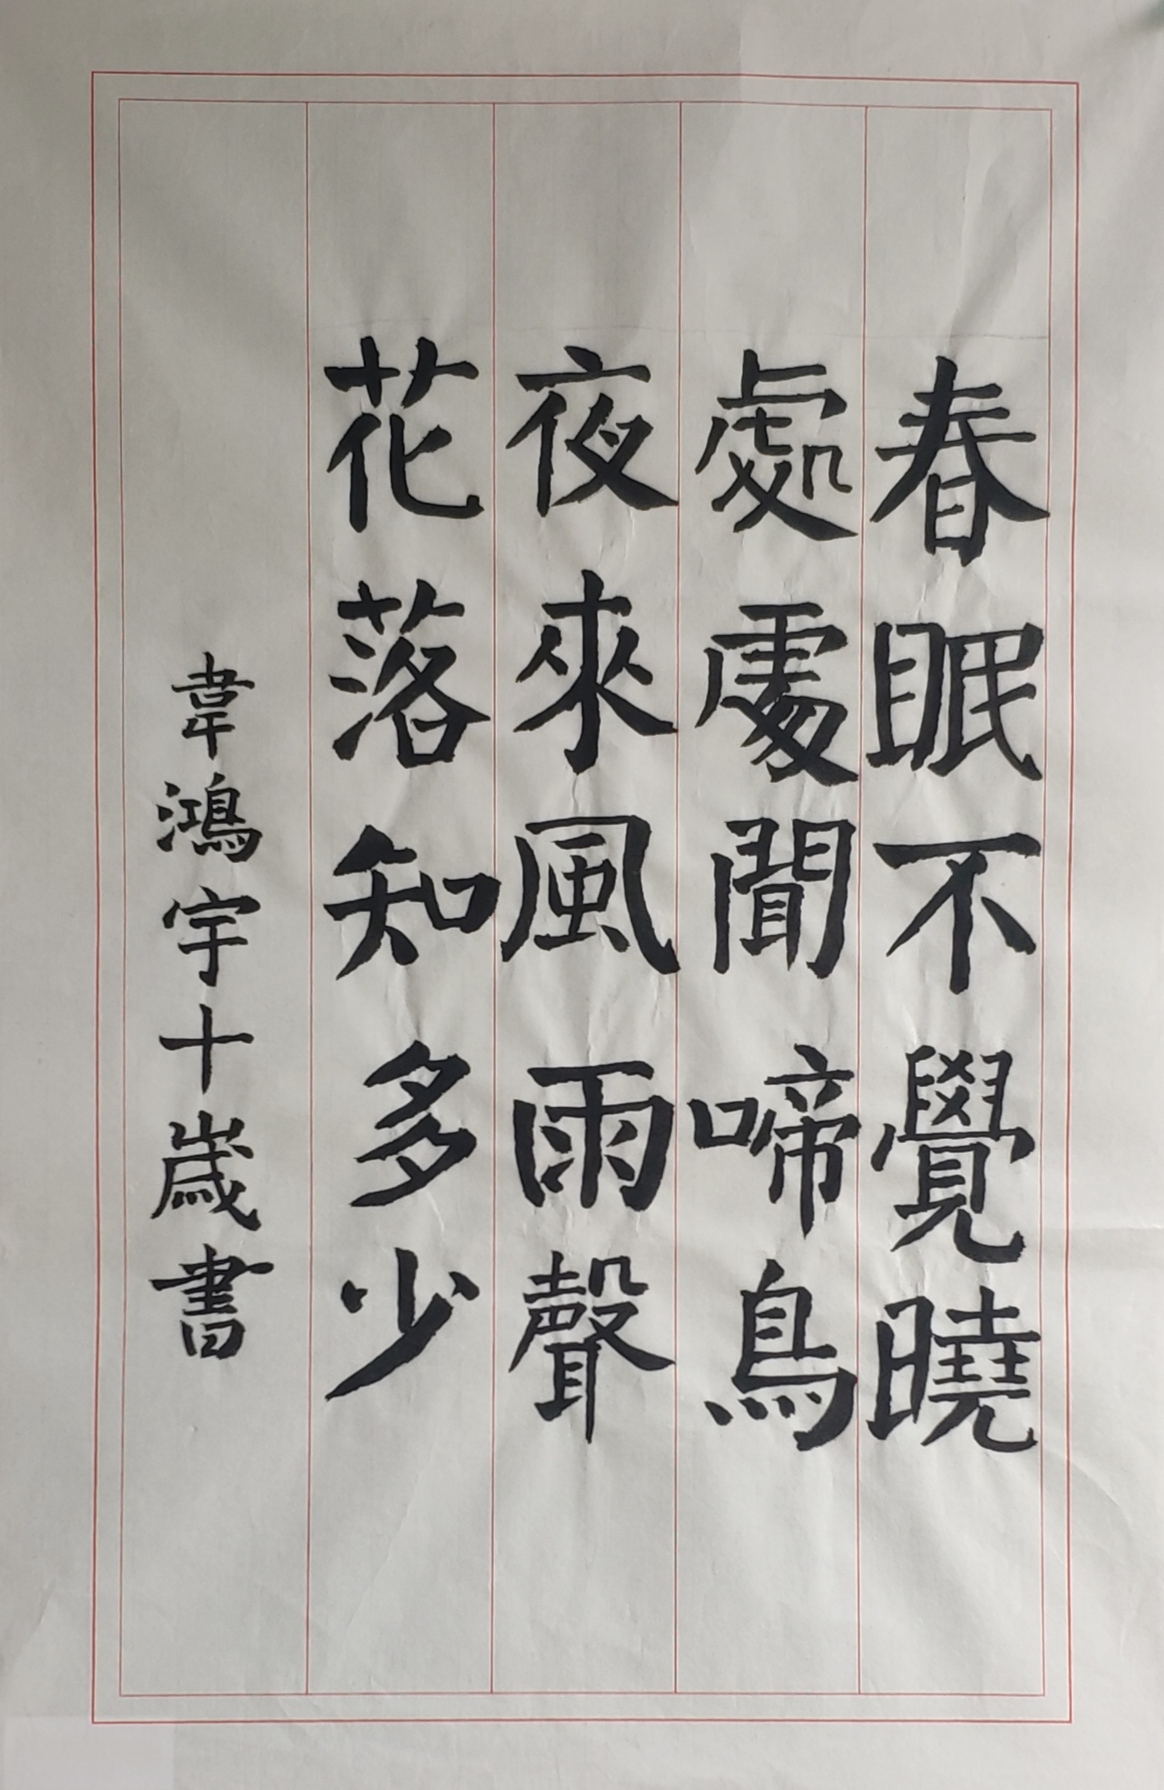 春眠不覺曉
處處聞啼鳥
夜來風雨聲
花落知多少
韋鴻宇十歲書